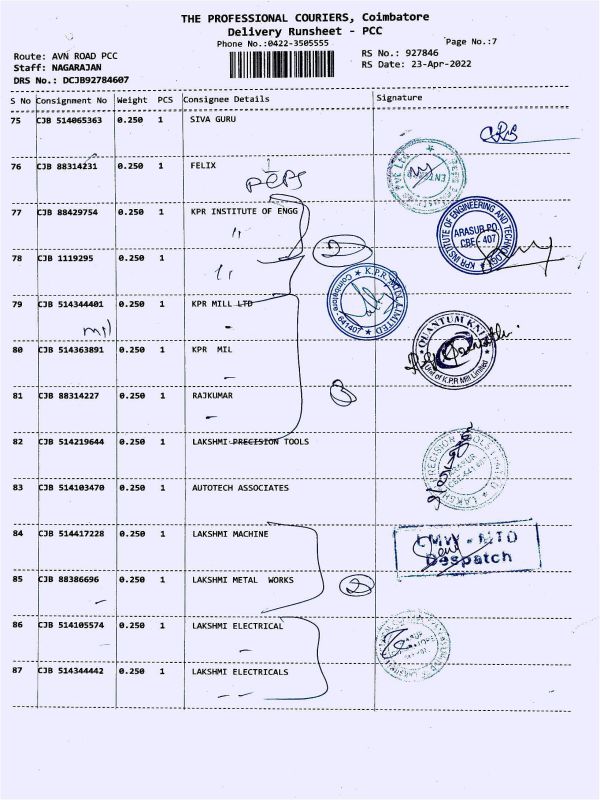 THE PROFESSIONAL COURIERS, Coimbatore
Delivery Runsheet - PCC
Phone No.:0422-3505555
Page No.:7
Route: AVN ROAD PCC
RS No.: 927846
Staff: NAGARAJAN
RS Date: 23-Apr-2022
DRS No.: DCJB92784607
S No Consignment No Weight PCS Consignee Details Signature
75 CJB 514065363 0.250 1 SIVA GURU
76 CJB 88314231 0.250 1 FELIX
77 CJB 88429754 0.250 1 KPR INSTITUTE OF ENGG
KPR INSTITUTE OF ENGINEERING AND TECHNOLOGY
ARASUR PO
CBE - 407
78 CJB 1119295 0.250 1
2
K.P.R. MILL LIMITED
Coimbatore - 641407
79 CJB 514344401 0.250 1 KPR MILL LTD
mil
QUANTUM KNIT
Unit of K.P.R Mill Limited
80 CJB 514363891 0.250 1 KPR MIL
81 CJB 88314227 0.250 1 RAJKUMAR
3
82 CJB 514219644 0.250 1 LAKSHMI PRECISION TOOLS
83 CJB 514103470 0.250 1 AUTOTECH ASSOCIATES
84 CJB 514417228 0.250 1 LAKSHMI MACHINE
LMW - MTD
Despatch
85 CJB 88386696 0.250 1 LAKSHMI METAL WORKS
2
86 CJB 514105574 0.250 1 LAKSHMI ELECTRICAL
87 CJB 514344442 0.250 1 LAKSHMI ELECTRICALS